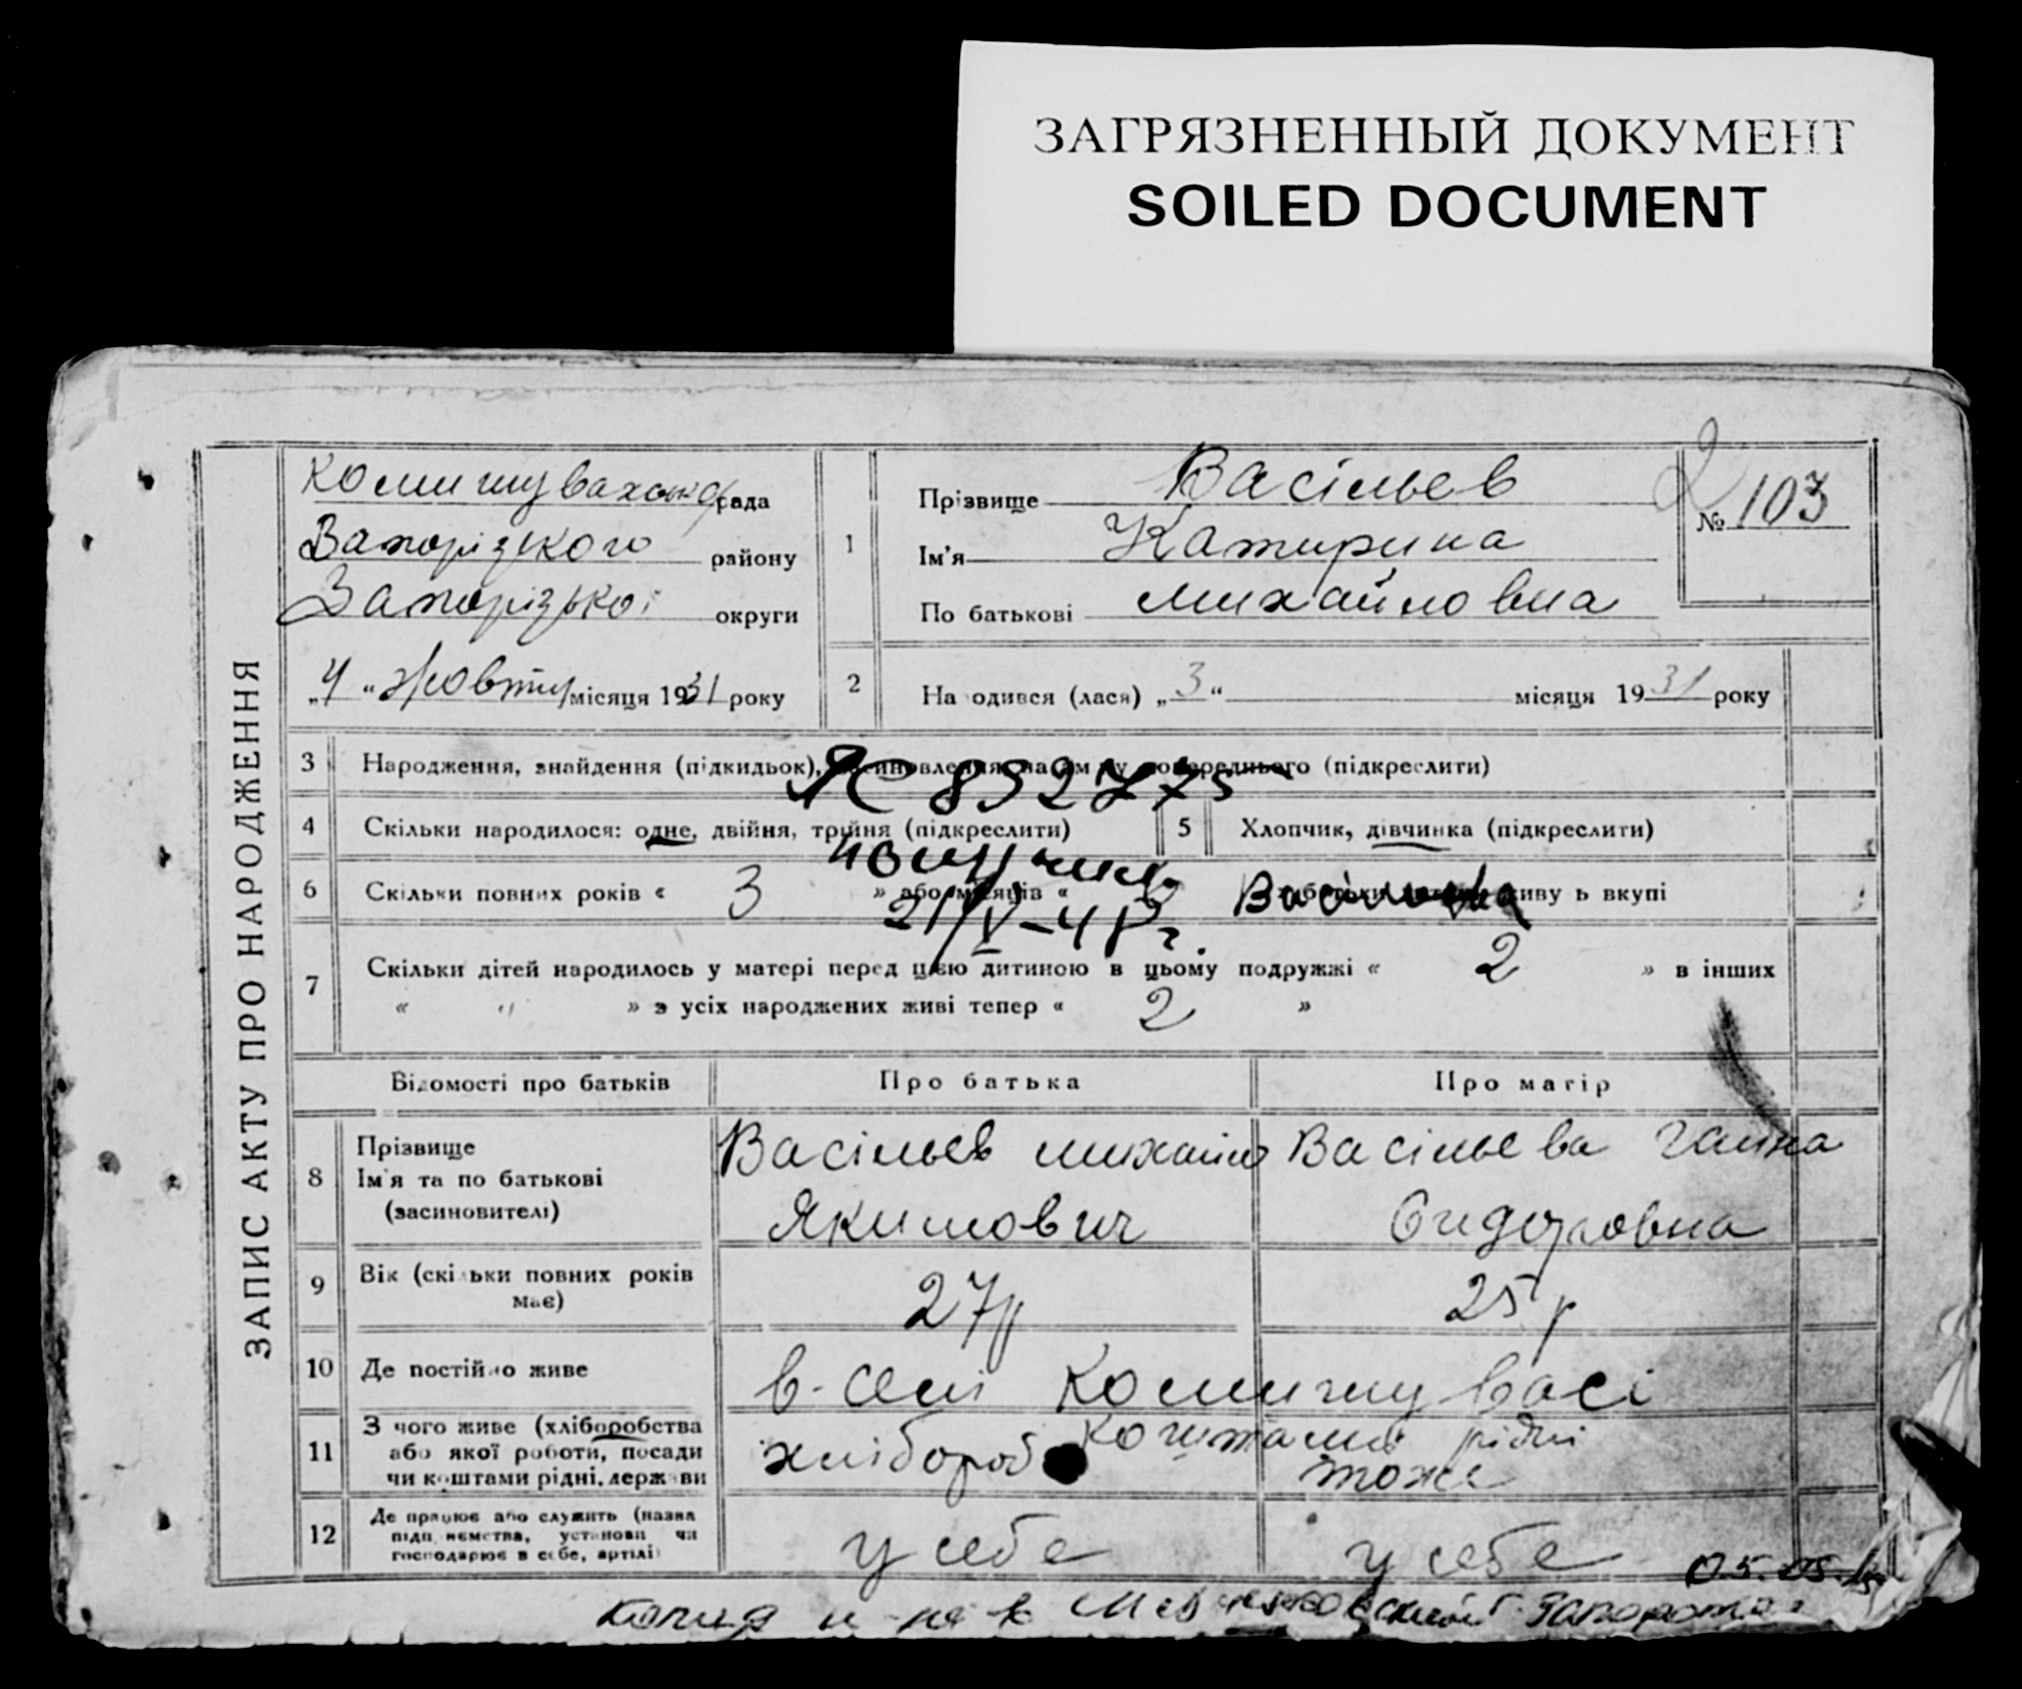 ЗАГРЯЗНЕННЫЙ ДОКУМЕНТ
SOILED DOCUMENT
ЗАПИС АКТУ ПРО НАРОДЖЕННЯ
рада
Запорізкого району
Запорізької округи
„4“ жовтня місяця 1931 року
1
Прізвище Васільев
Ім'я Катирина
По батькові Михайловна
№ 103
2
На одився (лася) „3“ місяця 1931 року
3 Народження, знайдення (підкидьок), попереднього (підкреслити)
ЯС 832775
4 Скільки народилося: одне, двійня, трійня (підкреслити)
5 Хлопчик, дівчинка (підкреслити)
6 Скільки повних років « 3 » або місяців « вкупі
21/V-41 г.
7 Скільки дітей народилось у матері перед цією дитиною в цьому подружжі « 2 » в інших
« " » з усіх народжених живі тепер « 2 »
Відомості про батьків
Про батька
Про матір
8 Прізвище
Ім'я та по батькові
(засиновителі)
Васільев Михайло
Якимович
Васільева Ганна
Сидоровна
9 Вік (скільки повних років
має)
27р
25 р
10 Де постійно живе
в. Селі Комишувасі
11 З чого живе (хліборобства
або якої роботи, посади
чи коштами рідні, держави
хлібороб
коштами рідні
тоже
12 Де працює або служить (назва
підприємства, установи чи
господарює в себе, артілі)
у себе
у себе
05.05.
копия и